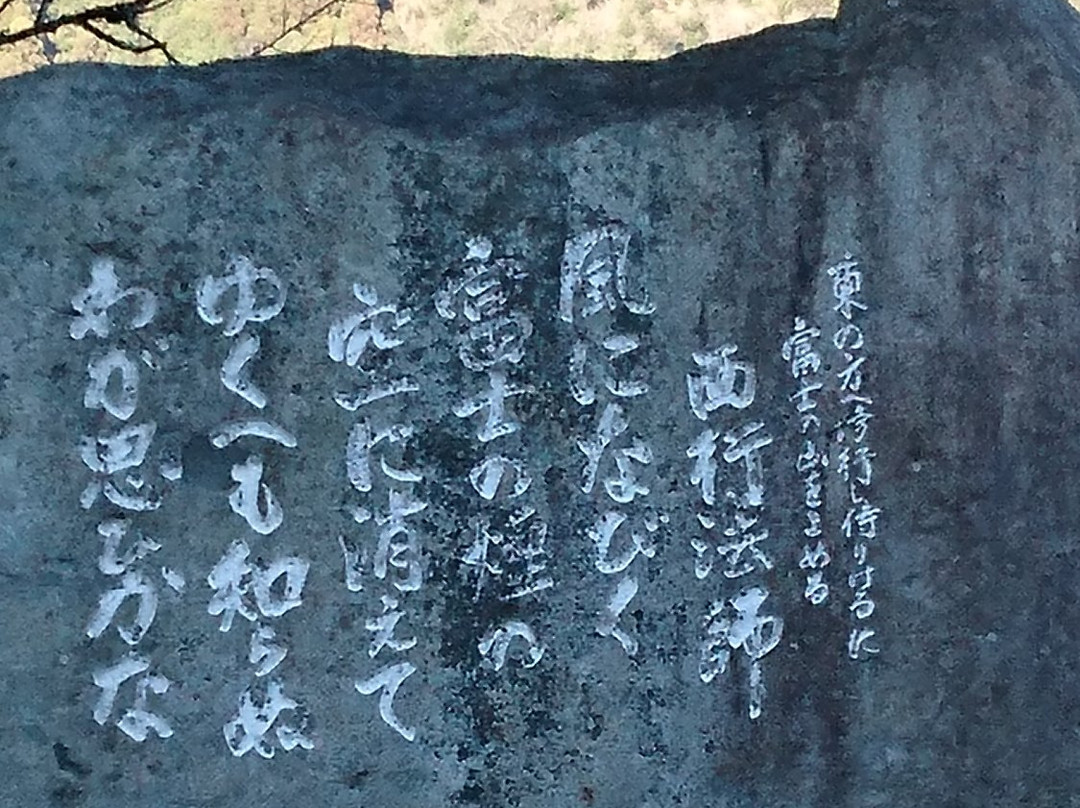 東の方へ修行し侍りけるに
富士の山をよめる
西行法師
風になびく
富士の煙の
空に消えて
ゆくへも知らぬ
わが思ひかな